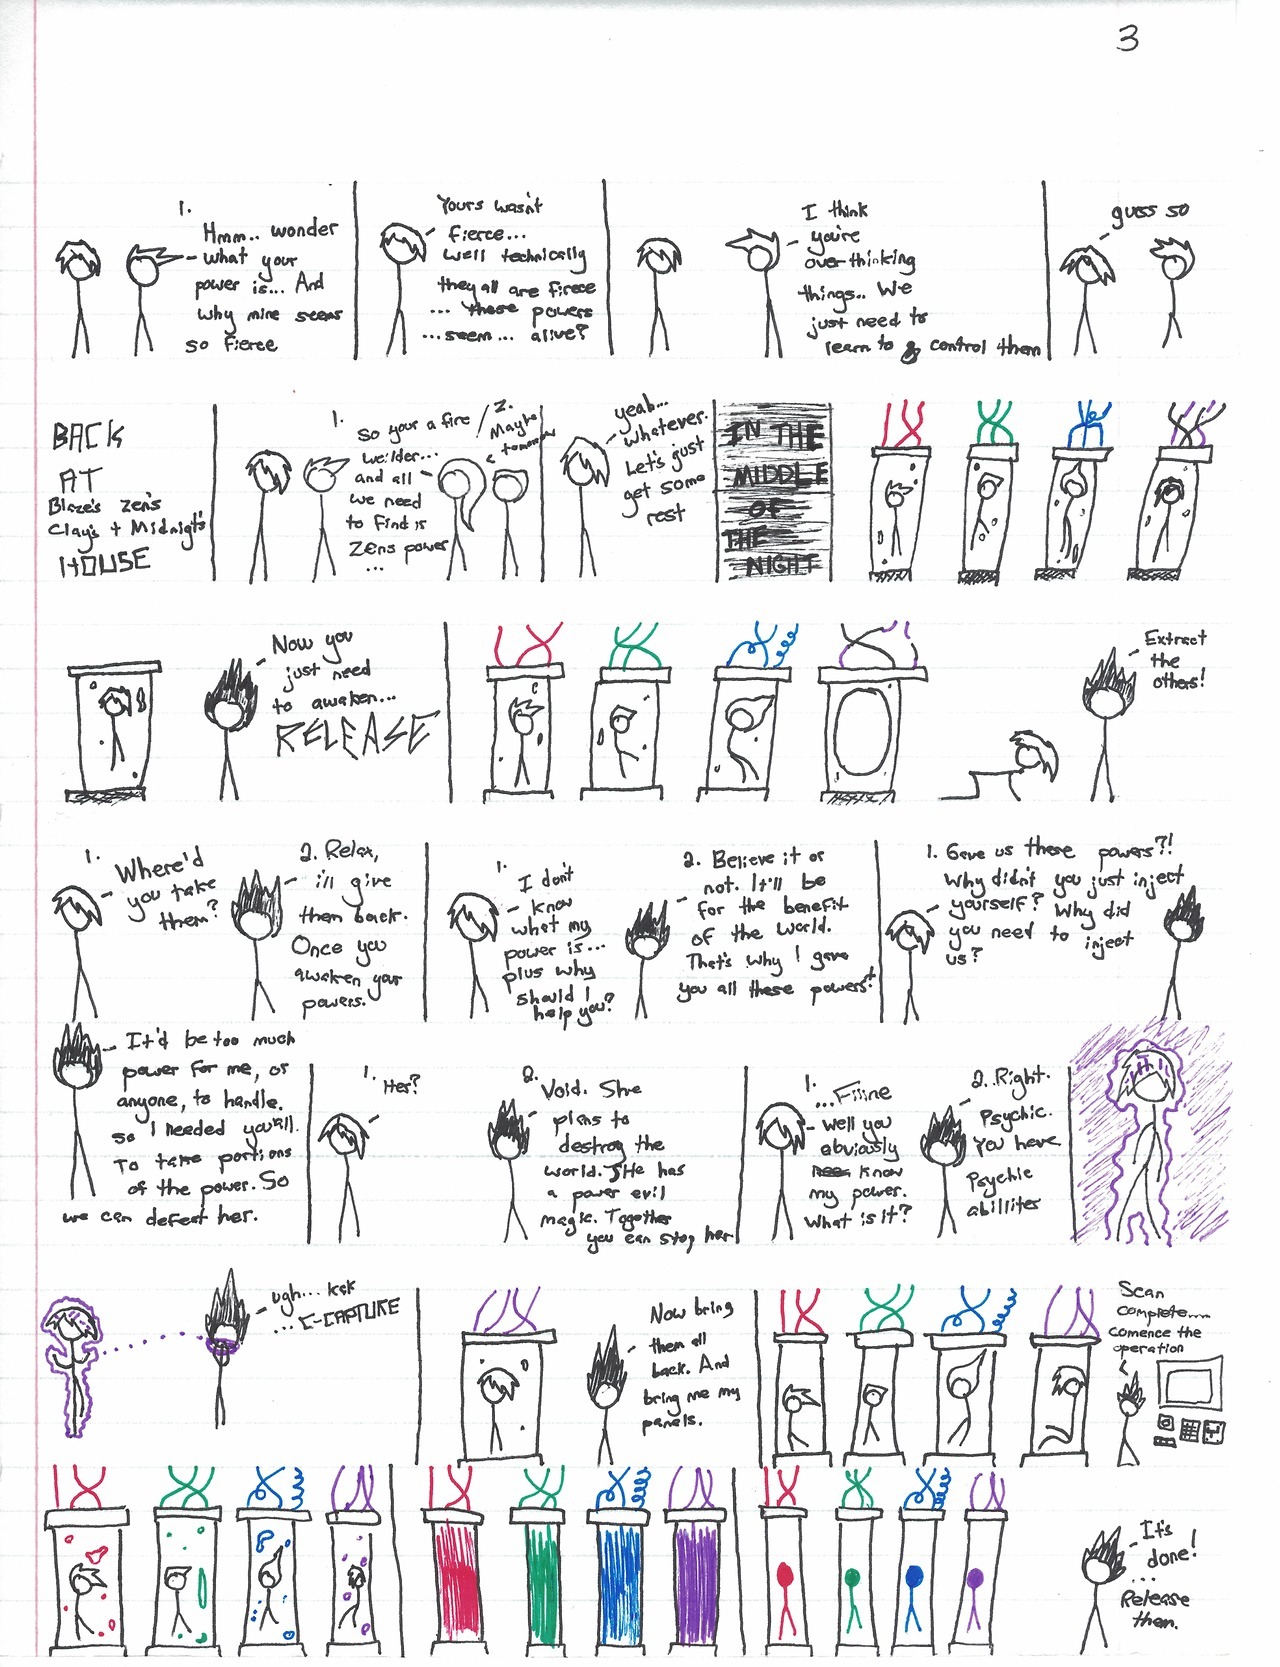 3
1.
Hmm.. wonder
what your
power is... And
why mine seems
so fierce
Yours wasn't
fierce...
well technically
they all are firece
... these powers
...seem... alive?
I think
you're
over thinking
things.. We
just need to
learn to control them
guess so
BACK
AT
Blaze's Zen's
Clay's + Midnigt's
HOUSE
1.
So your a fire
weilder...
and all
we need
to find is
Zens power
...
2.
Maybe
tomorrow
yeah...
whatever.
Let's just
get some
rest
IN THE
MIDDLE
OF
THE
NIGHT
Now you
just need
to awaken...
RELEASE
Extract
the
others!
1.
Where'd
you take
them?
2. Relax,
i'll give
them back.
Once you
awaken your
powers.
1.
I don't
know
what my
power is...
plus why
should I
help you?
2. Believe it or
not. It'll be
for the benefit
of the world.
That's why I gave
you all these powers!
1. Gave us these powers?!
Why didn't you just inject
yourself? Why did
you need to inject
us?
It'd be too much
power for me, or
anyone, to handle.
so I needed you'all.
To take portions
of the power. So
we can defeat her.
1.
Her?
2.
Void. She
plans to
destroy the
world. SHe has
a power evil
magic. Together
you can stop her
1.
...Fiiine
well you
obviously
know
my power.
What is it?
2. Right.
Psychic.
You have
Psychic
abillites
ugh... kck
... C-CAPTURE
Now bring
them all
back. And
bring me my
panels.
Scan
complete....
comence the
operation
It's
done!
...
Release
them.